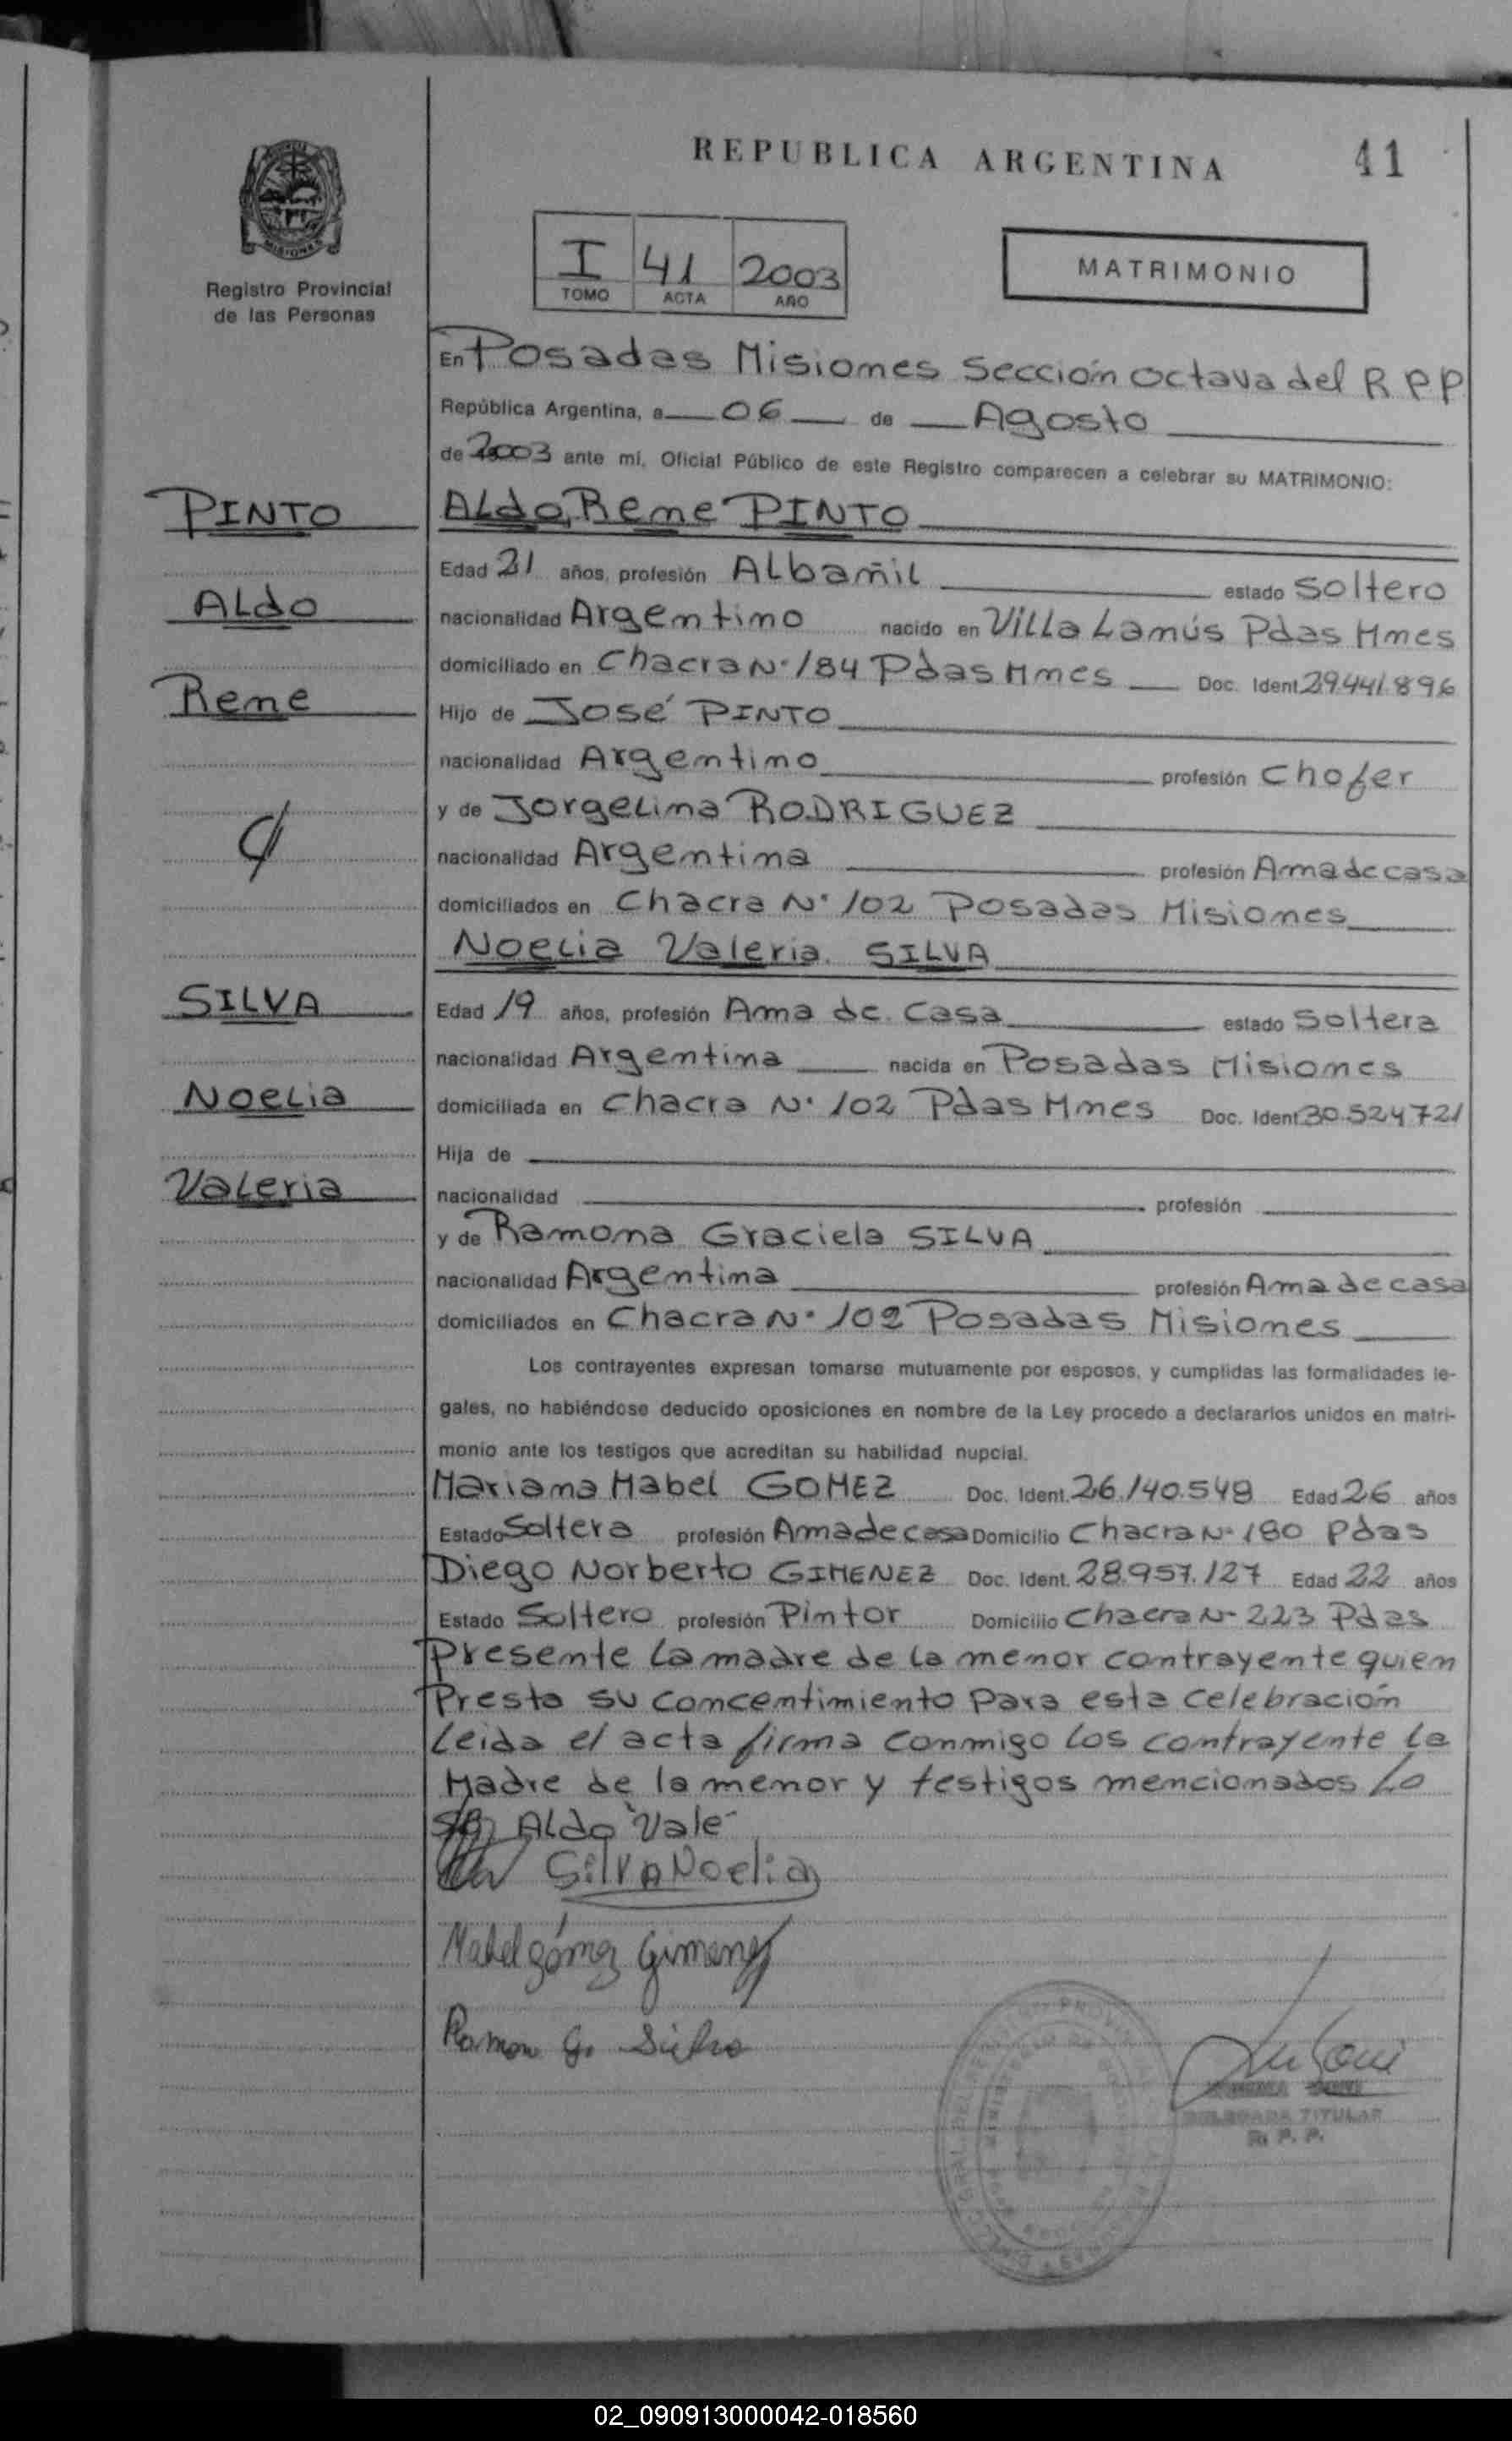 REPUBLICA ARGENTINA 41
MISIONES
Registro Provincial
de las Personas
I 41 2003
TOMO ACTA AÑO
MATRIMONIO
En Posadas Misiones Sección octava del R P P
República Argentina, a 06 de Agosto
de 2003 ante mi, Oficial Público de este Registro comparecen a celebrar su MATRIMONIO:
PINTO
Aldo Rene PINTO
Edad 21 años, profesión Albañil estado Soltero
Aldo
nacionalidad Argentino nacido en Villa Lanús Pdas Mnes
domiciliado en Chacra N° 184 Pdas Mnes Doc. Ident 29.441.896
Rene
Hijo de José PINTO
nacionalidad Argentino profesión Chofer
y de Jorgelina RODRIGUEZ
nacionalidad Argentina profesión Ama de casa
domiciliados en Chacra N° 102 Posadas Misiones
Noelia Valeria SILVA
SILVA
Edad 19 años, profesión Ama de Casa estado Soltera
nacionalidad Argentina nacida en Posadas Misiones
Noelia
domiciliada en Chacra N° 102 Pdas Mnes Doc. Ident 30.524721
Hija de
Valeria
nacionalidad profesión
y de Ramona Graciela SILVA
nacionalidad Argentina profesión Ama de casa
domiciliados en Chacra N° 102 Posadas Misiones
Los contrayentes expresan tomarse mutuamente por esposos, y cumplidas las formalidades le-
gales, no habiéndose deducido oposiciones en nombre de la Ley procedo a declararlos unidos en matri-
monio ante los testigos que acreditan su habilidad nupcial.
Mariana Mabel GOMEZ Doc. Ident. 26.140.549 Edad 26 años
Estado Soltera profesión Ama de casa Domicilio Chacra N° 180 Pdas
Diego Norberto GIMENEZ Doc. Ident. 28.957.127 Edad 22 años
Estado Soltero profesión Pintor Domicilio Chacra N° 223 Pdas
Presente la madre de la menor contrayente quien
Presta su concentimiento para esta celebración
Leida el acta firma conmigo los contrayente la
Madre de la menor y testigos mencionados Lo
Aldo Vale
Silva Noelia
Mabel gómez Gimenez
Ramona G. Silva
DELEGADA TITULAR
R. P. P.
02_090913000042-018560